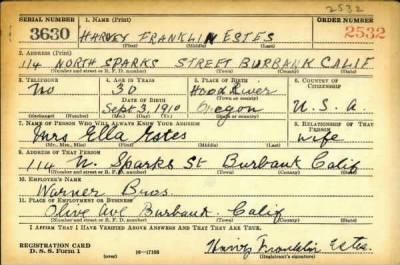 2532
SERIAL NUMBER 1. NAME (Print) ORDER NUMBER
3630 HARVEY FRANKLIN ESTES 2532
(First) (Middle) (Last)
2. ADDRESS (Print)
114 NORTH SPARKS STREET BURBANK CALIF
(Number and street or R. F. D. number) (Town) (County) (State)
3. TELEPHONE 4. AGE IN YEARS 5. PLACE OF BIRTH 6. COUNTRY OF CITIZENSHIP
No 30 Hood River U. S. A.
DATE OF BIRTH (Town or county)
Sept 3, 1910 Oregon
(Mo.) (Day) (Yr.) (State or country)
7. NAME OF PERSON WHO WILL ALWAYS KNOW YOUR ADDRESS 8. RELATIONSHIP OF THAT PERSON
Mrs Ella Estes wife
(Mr., Mrs., Miss) (First) (Middle) (Last)
9. ADDRESS OF THAT PERSON
114 N. Sparks St Burbank Calif
(Number and street or R. F. D. number) (Town) (County) (State)
10. EMPLOYER'S NAME
Warner Bros.
11. PLACE OF EMPLOYMENT OR BUSINESS
Olive Ave Burbank. Calif
(Number and street or R. F. D. number) (Town) (County) (State)
I AFFIRM THAT I HAVE VERIFIED ABOVE ANSWERS AND THAT THEY ARE TRUE.
REGISTRATION CARD
D. S. S. Form 1 (over) 16-17105
Harvey Franklin Estes
(Registrant's signature)